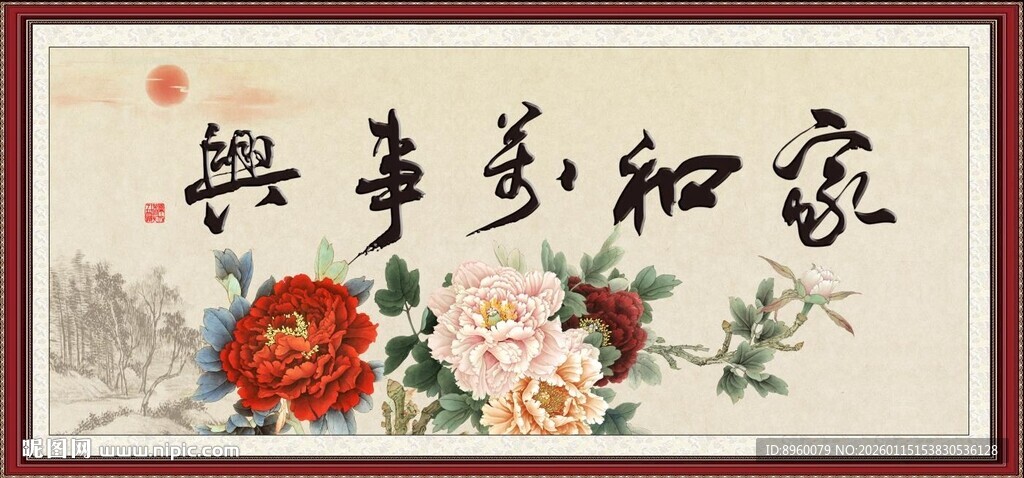 家和萬事興
昵图网 www.nipic.com
ID:8960079 NO:20260115153830536128